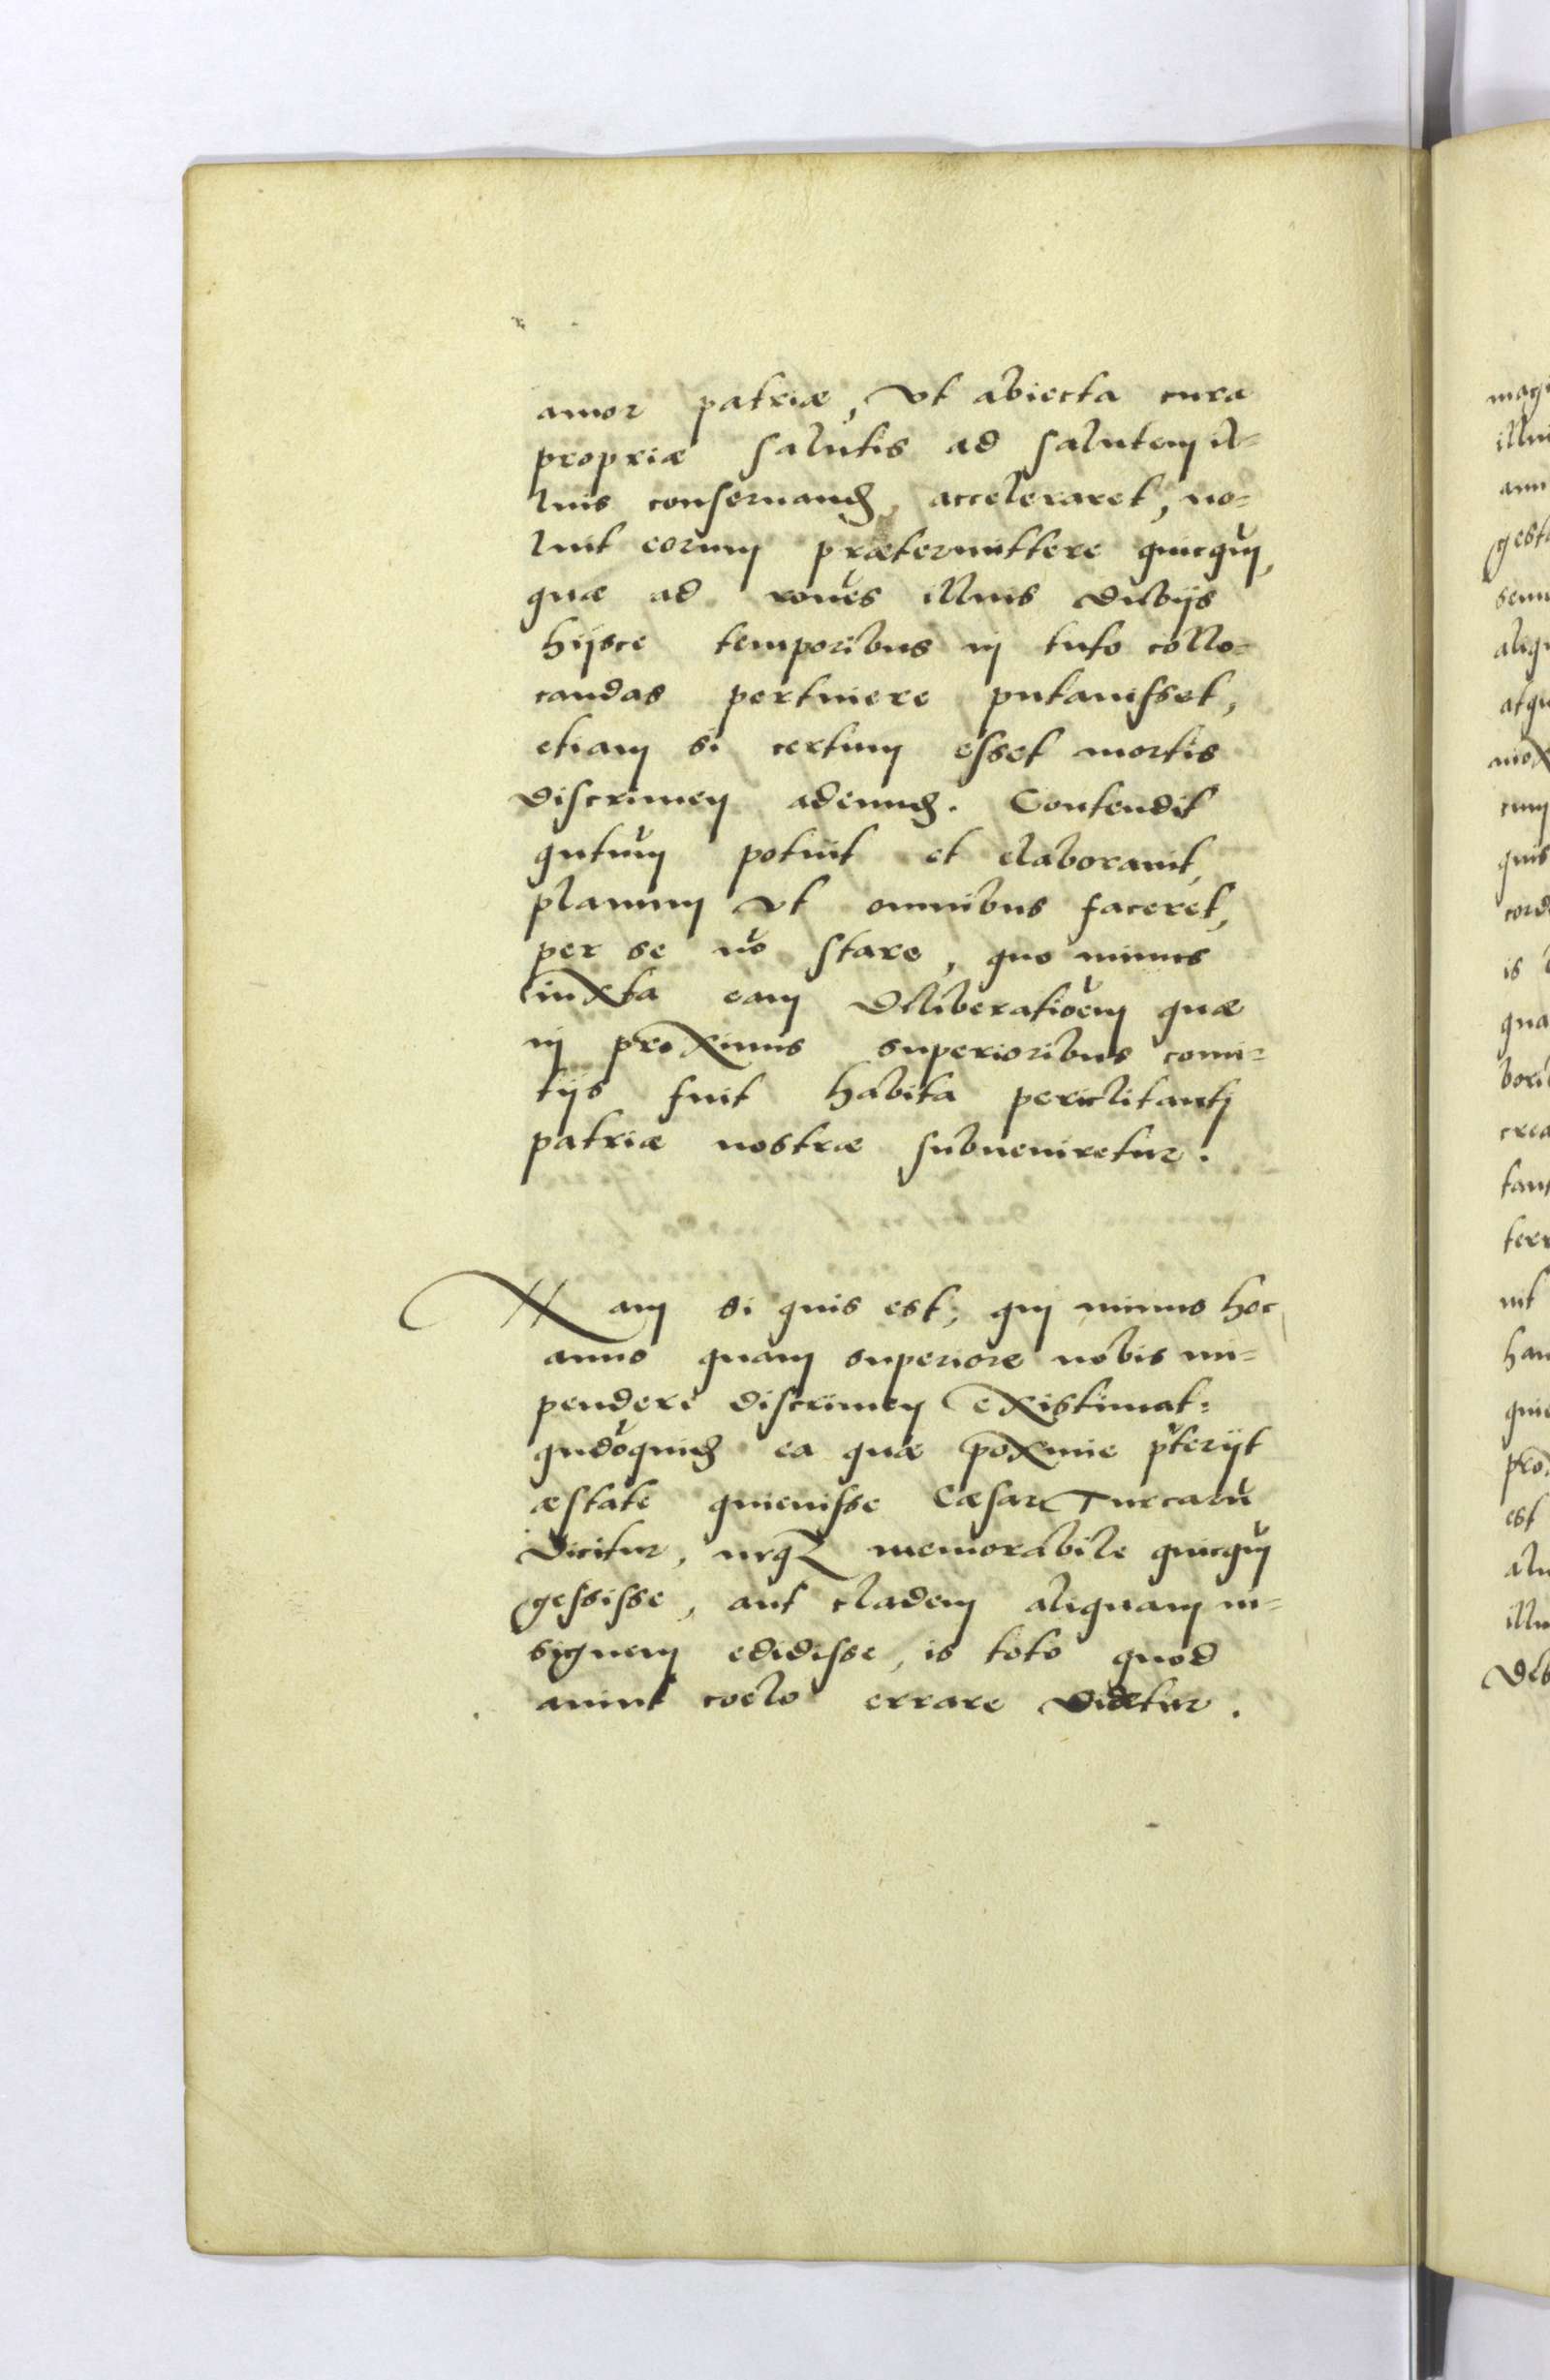 amor patriæ, vt abiecta cura
propriæ salutis ad salutem il=
lius conseruandã, acceleraret, no=
luit eorum prætermittere quicquã,
quæ ad rões illius dubijs
hijsce temporibus in tuto collo=
candas pertinere putauisset,
etiam si certum esset mortis
discrimen adeundũ. Contendit
quũtum potuit et elaborauit,
planum vt omnibus faceret,
per se nõ stare, quo minus
iuxta eam deliberatiõem quæ
in proximis superioribus comi=
tijs fuit habita periclitanti
patriæ nostræ subueniretur.
Nam si quis est, qui minus hoc
anno quam superiore nobis im=
pendere discrimen existimat:
quũdoquidẽ ea quæ proxime p̃terijt
æstate quieuisse Cæsar Turcarũ
dicitur, neqꝫ memorabile quicquã
gessisse, aut cladem aliquam in=
signem edidisse, is toto quod
aiunt coelo errare videtur.